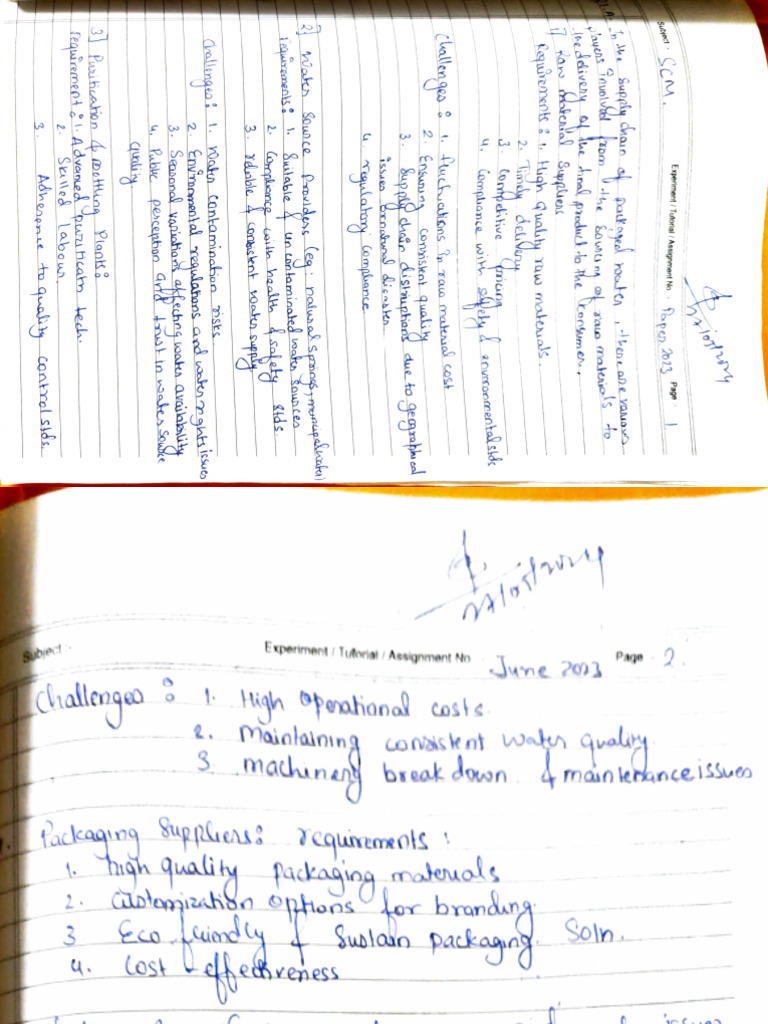 27/05/2024
Subject: SCM.
Experiment / Tutorial / Assignment No. Paper 2023 Page 1
In the supply chain of packaged water, there are various
players involved from the sourcing of raw materials to
the delivery of the final product to the consumer.
1) Raw material suppliers
Requirements: 1. High quality raw materials.
2. Timely delivery
3 Competitive pricing
4. Compliance with safety & environmental stds
Challenges: 1. fluctuations in raw material cost
2. Ensuring consistent quality
3. supply chain disruptions due to geographical
issues or natural disaster
4. regulatory compliance
2] Water Source Providers (eg: natural springs, municipal water)
requirements: 1. Suitable & uncontaminated water sources
2. Compliance with health & safety stds.
3. reliable & consistent water supply
Challenges: 1. Water contamination risks.
2. Environmental regulations and water rights issues
3. Seasonal variations affecting water availability
4. Public perception and trust in water source
quality
3] Purification & Bottling Plants:
requirement: 1. Advanced purificatn tech.
2. Skilled labour.
3. Adherence to quality control stds.
27/05/2024
Subject:
Experiment / Tutorial / Assignment No June 2023 Page 2.
Challenges: 1. High Operational costs.
2. maintaining consistent water quality
3 machinery break down & maintenance issues
Packaging Suppliers: requirements:
1. high quality packaging materials
2. customization options for branding.
3 Eco friendly & Sustain packaging Soln.
4. Cost-effectiveness
issues